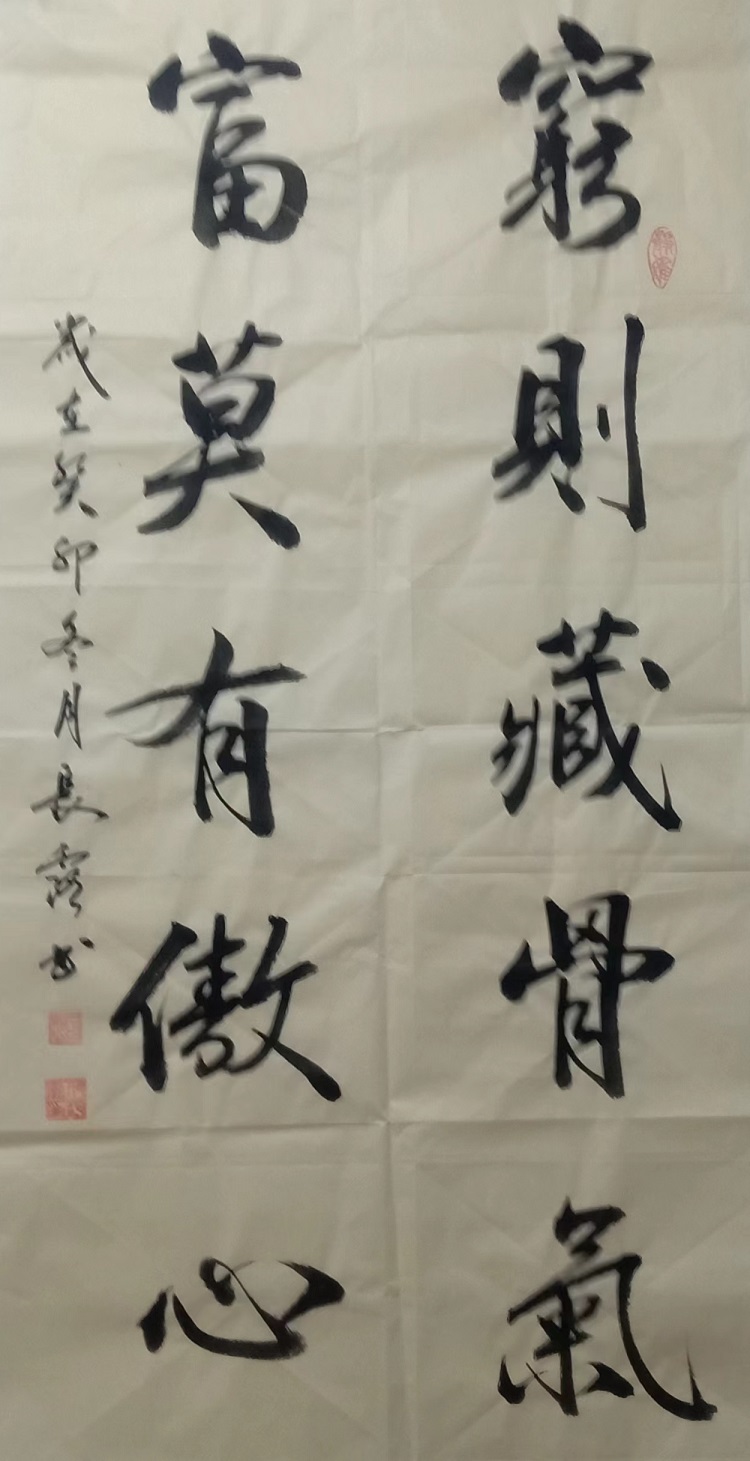 窮則藏骨氣
富莫有傲心
歲在癸卯冬月長露书